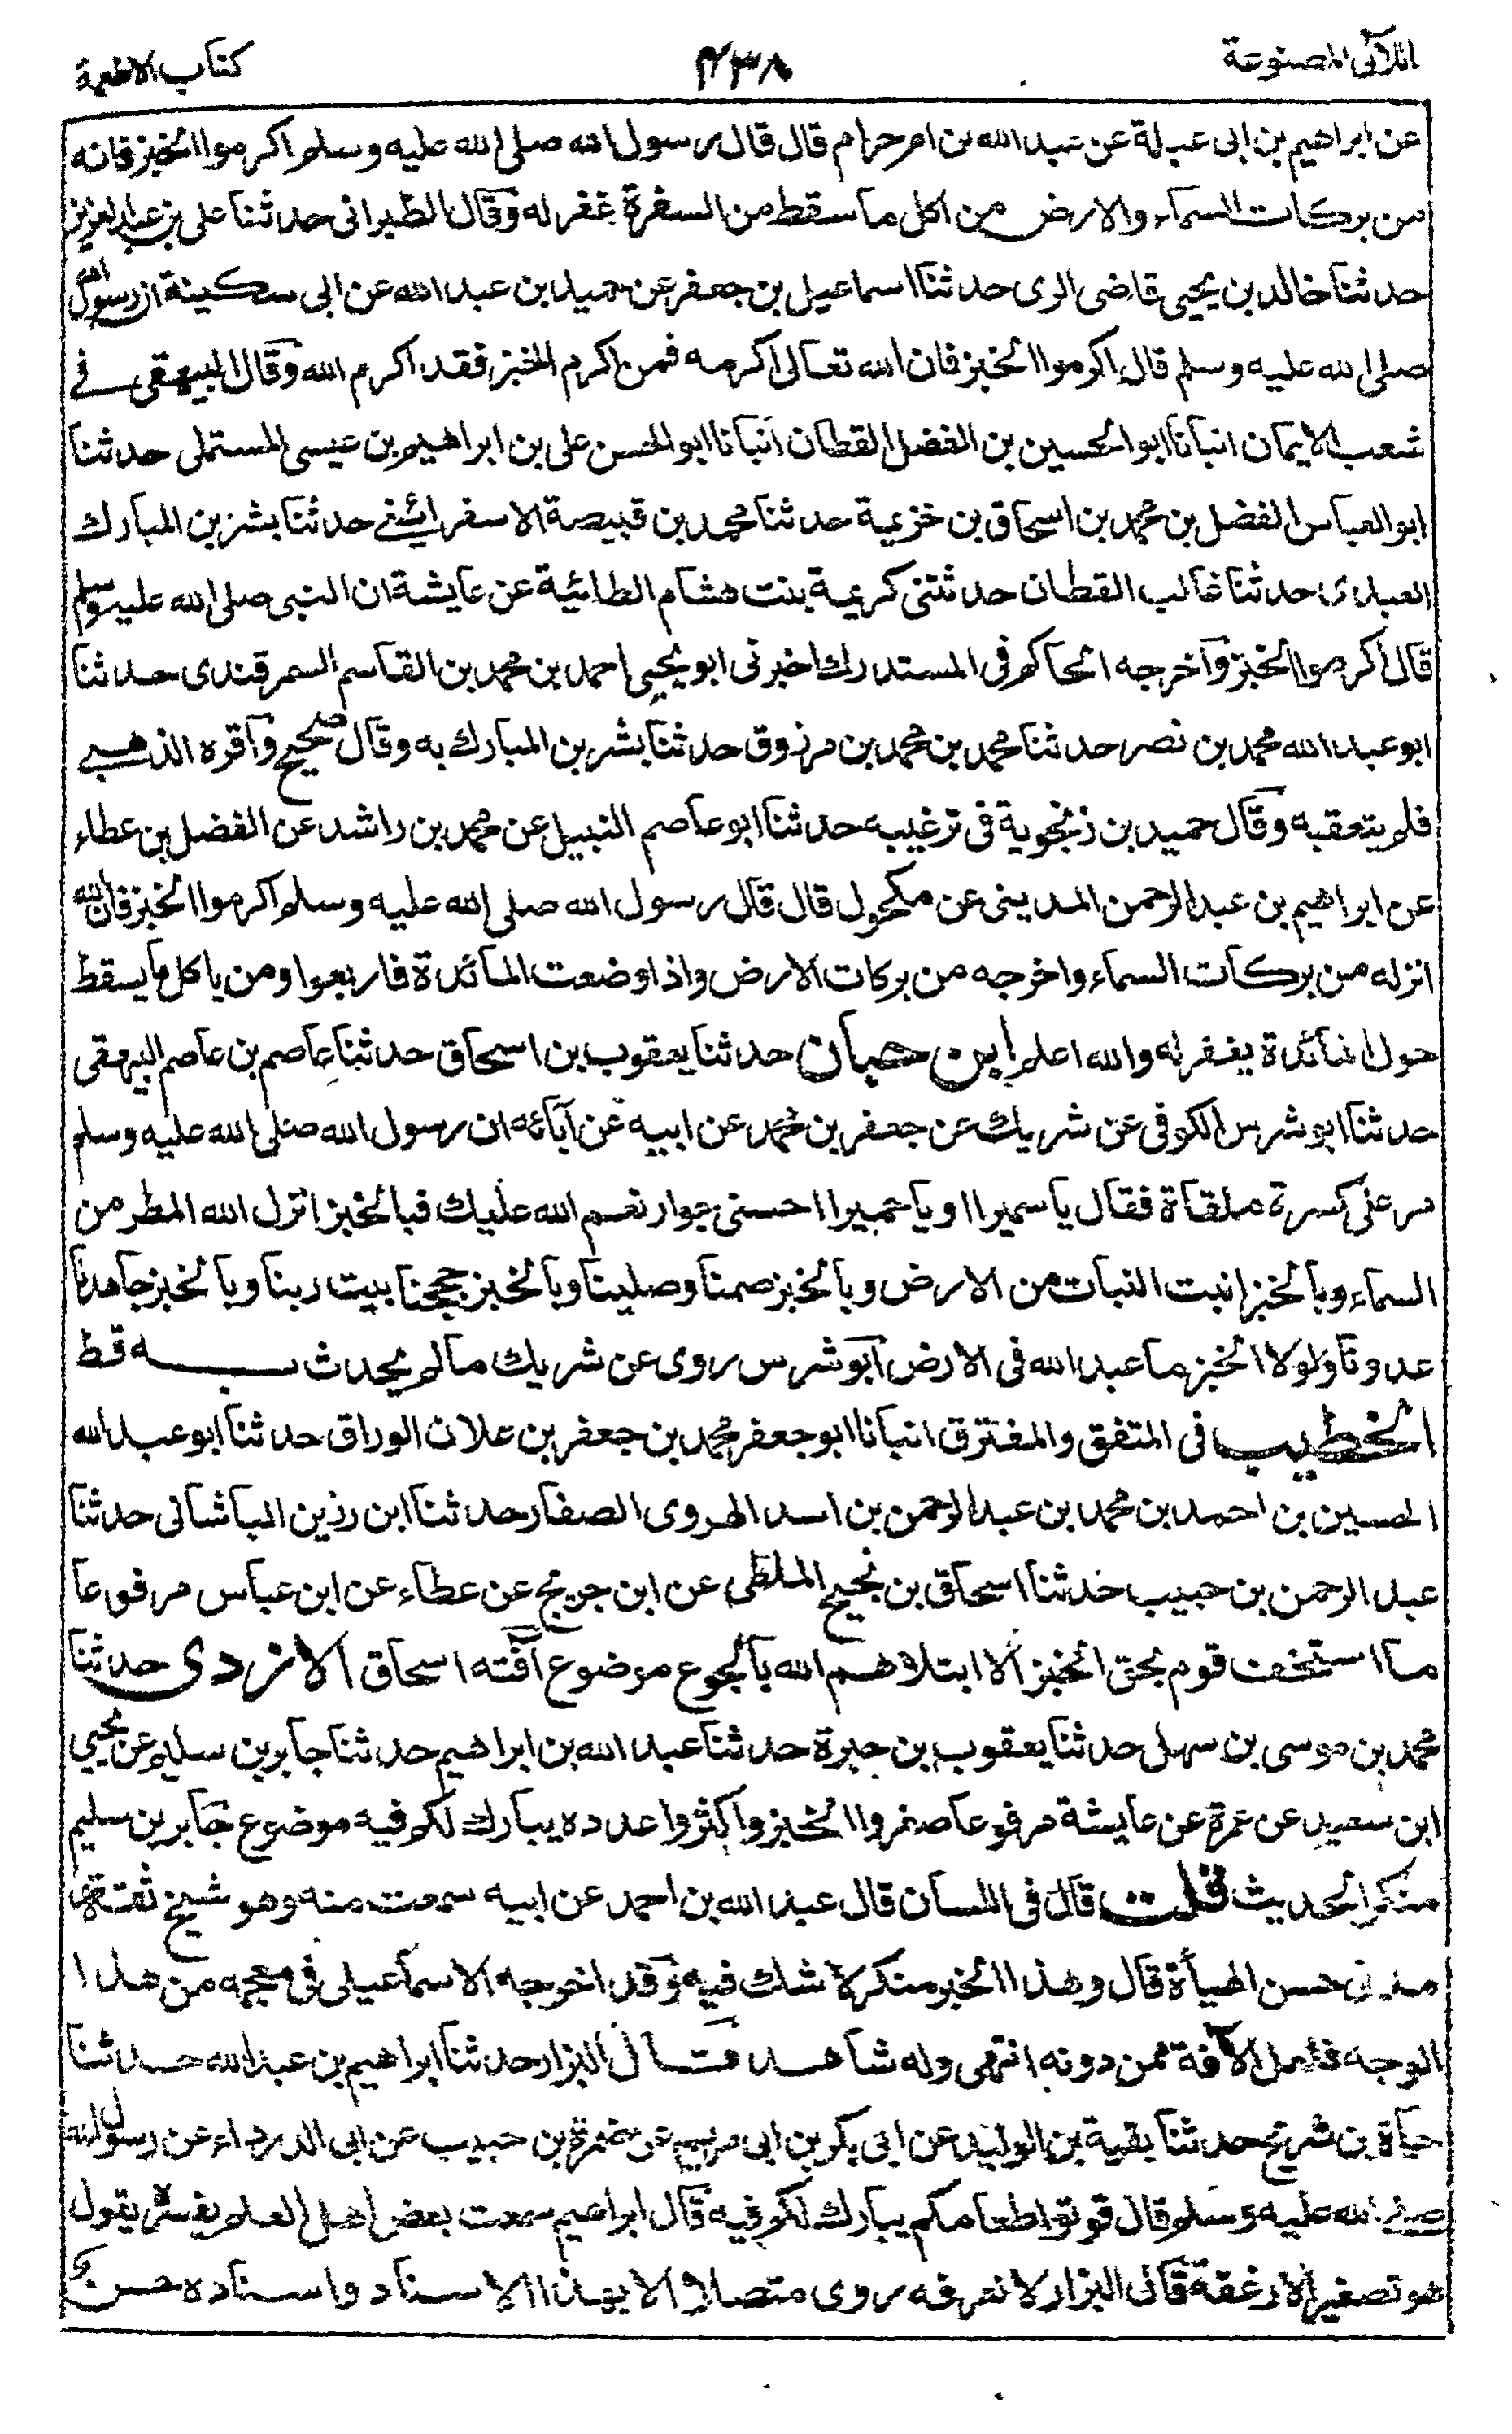 اللآلئ المصنوعة
۴۳۸
كتاب الاطعمة
عن ابراهيم بن ابى عبلة عن عبد الله بن ام حرام قال قال رسول الله صلى الله عليه وسلم اكرموا الخبز فانه
من بركات السماء والارض من اكل ما سقط من السفرة غفر له وقال الطبرانى حدثنا على بن عبد العزيز
حدثنا خالد بن يحيى قاضى الرى حدثنا اسماعيل بن جعفر عن حميد بن عبد الله عن ابى سكينة ان رسول الله
صلى الله عليه وسلم قال اكرموا الخبز فان الله تعالى اكرمه فمن اكرم الخبز فقد اكرم الله وقال البيهقى فے
شعب الايمان انبأنا ابو الحسين بن الفضل القطان انبأنا ابو الحسن على بن ابراهيم بن عيسى المستملى حدثنا
ابو العباس الفضل بن محمد بن اسحاق بن خزيمة حدثنا محمد بن قبيصة الاسفرائينے حدثنا بشر بن المبارك
العبدى حدثنا غالب القطان حدثتنى كريمة بنت هشام الطائية عن عايشة ان النبى صلى الله عليه وسلم
قال اكرموا الخبز وآخرجه الحاكم فى المستدرك اخبرنى ابو يحيى احمد بن محمد بن القاسم السمرقندى حدثنا
ابو عبد الله محمد بن نصر حدثنا محمد بن محمد بن مرزوق حدثنا بشر بن المبارك به وقال صحيح وآقره الذهبے
فلم يتعقبه وقال حميد بن زنجوية فى ترغيبه حدثنا ابو عاصم النبيل عن محمد بن راشد عن الفضل بن عطاء
عن ابراهيم بن عبد الرحمن المدينى عن مكحول قال قال رسول الله صلى الله عليه وسلم اكرموا الخبز فان الله
انزله من بركات السماء واخرجه من بركات الارض واذا وضعت المائدة فاربعوا ومن ياكل ما يسقط
حول المائدة يغفر له والله اعلم ابن حبان حدثنا يعقوب بن اسحاق حدثنا عاصم بن عاصم البيهقى
حدثنا ابو شرس الكوفى عن شريك عن جعفر بن محمد عن ابيه عن آبائه ان رسول الله صلى الله عليه وسلم
مر على كسرة ملقاة فقال يا سميرا او يا حميرا احسنى جوار نعم الله عليك فبالخبز انزل الله المطر من
السماء وبالخبز انبت النبات من الارض وبالخبز صمنا وصلينا وبالخبز حججنا بيت ربنا وبالخبز جاهدنا
عدونا ولولا الخبز ما عبد الله فى الارض آبو شرس روى عن شريك ما لم يحدث بـــــه قط
الخطيب فى المتفق والمفترق انبانا ابو جعفر محمد بن جعفر بن علان الوراق حدثنا ابو عبد الله
الحسين بن احمد بن محمد بن عبد الرحمن بن اسد الهروى الصفار حدثنا ابن رزين الباشانى حدثنا
عبد الرحمن بن حبيب حدثنا اسحاق بن نجيح الملطى عن ابن جريج عن عطاء عن ابن عباس مرفوعا
ما استخف قوم بحق الخبز الا ابتلاهم الله بالجوع موضوع آفته اسحاق الازدى حدثنا
محمد بن موسى بن سهل حدثنا يعقوب بن جبرة حدثنا عبد الله بن ابراهيم حدثنا جابر بن سليم عن يحيى
ابن سعيد عن عمرة عن عايشة مرفوعا صغروا الخبز واكثروا عدده يبارك لكم فيه موضوع جابر بن سليم
منكر الحديث قلت قال فى اللسان قال عبد الله بن احمد عن ابيه سمعت منه وهو شيخ ثقة
مدنى حسن الهيأة قال وهذا الخبر منكر لا شك فيه وقد اخرجه الاسماعيلى فى معجمه من هذا
الوجه فلعل الآفة ممن دونه انتهى وله شاهد قـال البزار حدثنا ابراهيم بن عبد الله حدثنا
حياة بن شريح حدثنا بقية بن الوليد عن ابى بكر بن ابى مريم عن ضمرة بن حبيب عن ابى الدرداء عن رسول الله
صلى الله عليه وسلم قال قوتوا طعامكم يبارك لكم فيه قال ابراهيم سمعت بعض اهل العلم يفسره يقول
هو تصغير الارغفة قال البزار لا نعرفه روى متصلا الا بهذا الاسناد واسناده حسن